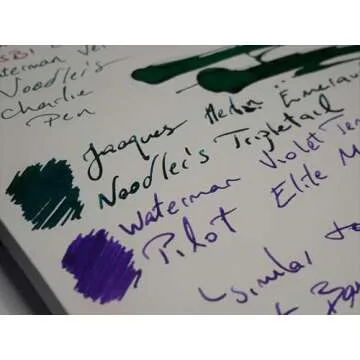 Waterman Ver
Noodler's
Charlie
Pen
Jacques Herbin Emerau
Noodler's Tripletail
Waterman Violet Ten
Pilot Elite M
similar to